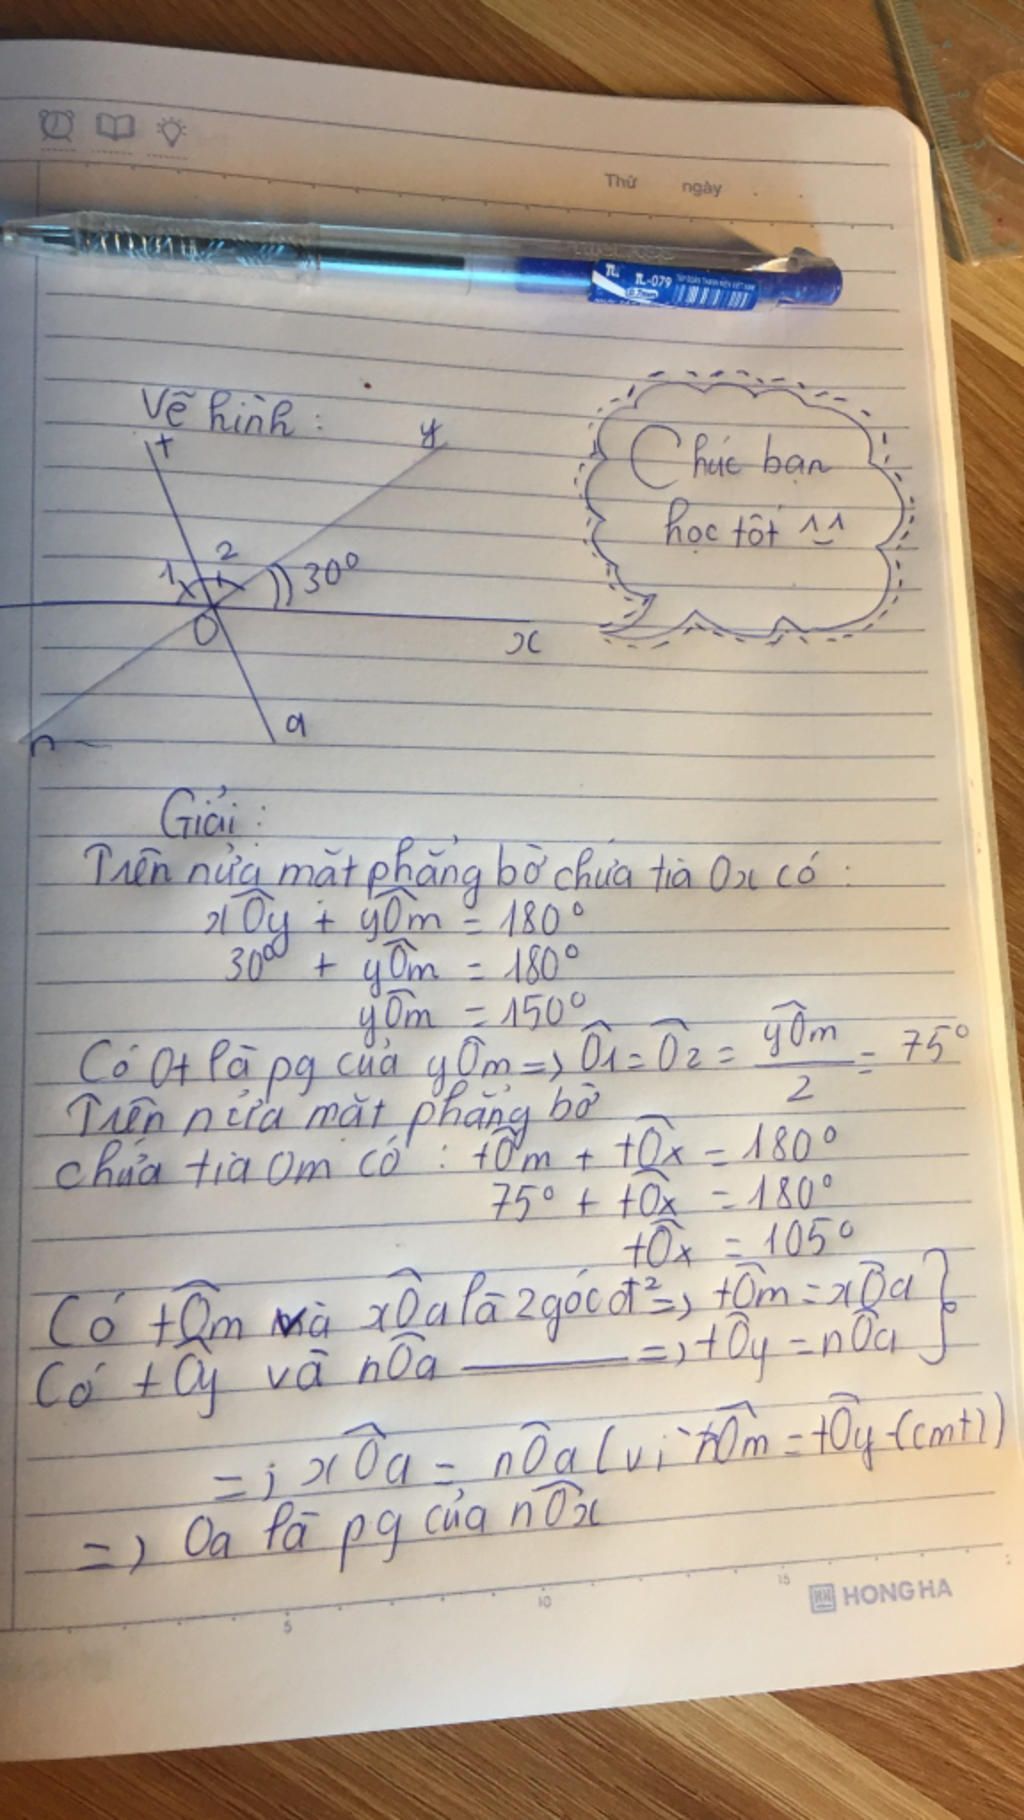 Thứ ngày
TL-079
Vẽ hình :
t
y
Chúc bạn
học tốt ^^
1
2
30°
O
x
a
n
Giải :
Trên nửa mặt phẳng bờ chứa tia Ox có :
xÔy + yÔm = 180°
30° + yÔm = 180°
yÔm = 150°
Có Ot là pg của yÔm => Ô1 = Ô2 = yÔm / 2 = 75°
Trên nửa mặt phẳng bờ
chứa tia Om có : tÔm + tÔx = 180°
75° + tÔx = 180°
tÔx = 105°
Có tÔm và xÔa là 2 góc đ² => tÔm = xÔa }
Có tÔy và nÔa ——— => tÔy = nÔa
=> xÔa = nÔa (vì tÔm = tÔy (cmt))
=> Oa là pg của nÔx
5 10 15
HONG HA